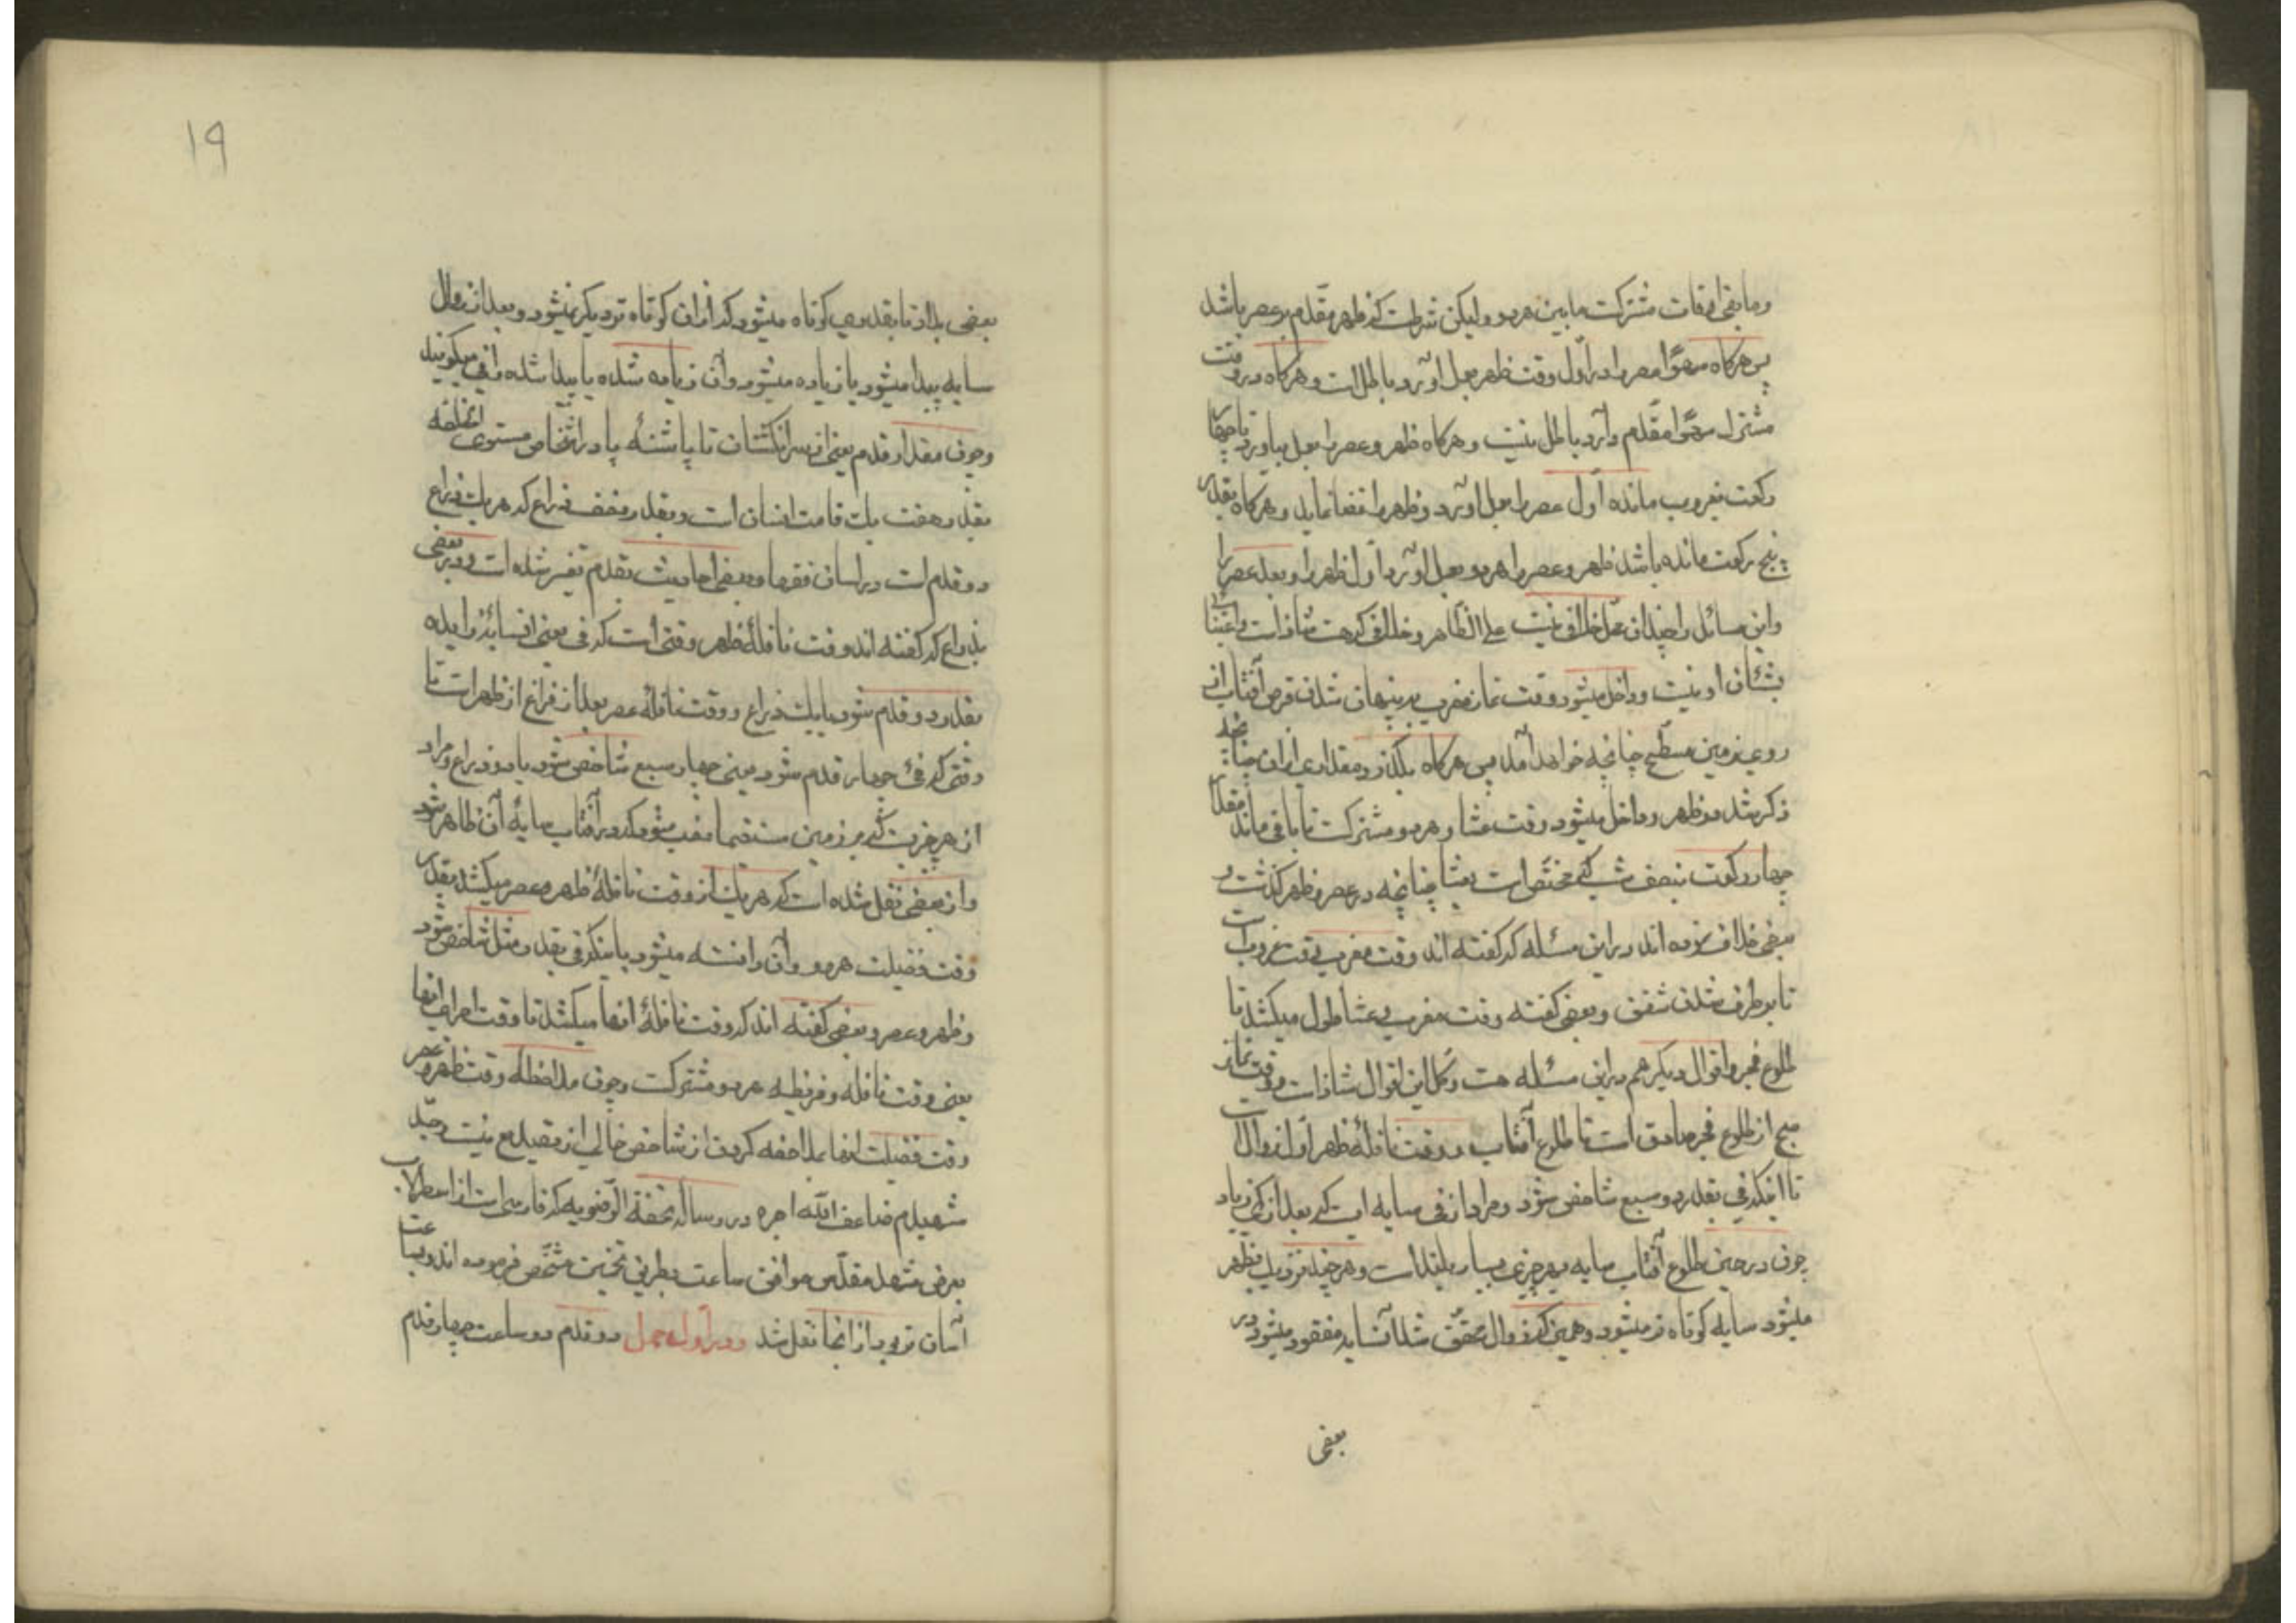 وما بقی اوقات مشترکست مابین هر دو ولیکن شرطست که ظهر مقدم بر عصر باشد
پس هرگاه سهوًا عصر را در اول وقت ظهر بعمل آورد باطل است و هرگاه در وقت
مشترک سهوًا مقدم دارد باطل نیست و هرگاه ظهر و عصر را بعمل نیاورد تا چهار
رکعت بغروب مانده اول عصر را بعمل آورد و ظهر را قضا نماید و هرگاه بقدر
پنج رکعت مانده باشد ظهر و عصر را هر دو بعمل آورد اول ظهر را و بعد عصر را
واین مسائل را چندان محل خلافی نیست علی الظاهر و خلافی که هست شاذ است و اعتنا
بشان او نیست و داخل میشود وقت نماز مغرب به پنهان شدن قرص آفتاب از
روی زمین مسطح چنانچه خواهد آمد پس هرگاه بگذرد مقداری از آن چنانچه
ذکر شد در ظهر داخل میشود وقت عشا و هر دو مشترکست تا باقی ماند مقدار
چهار رکعت بنصف شب که مختص است بعشا چنانچه در عصر و ظهر گذشت و
بعضی خلاف نموده اند در این مسئله که گفته اند وقت مغرب وقت غروب است
تا برطرف شدن شفق و بعضی گفته وقت مغرب و عشا طول میکشد تا
طلوع فجر و اقوال دیگر هم در این مسئله هست و کل این اقوال شاذ است و وقت نماز
صبح از طلوع فجر صادق است تا طلوع آفتاب و وقت نافلهٔ ظهر از اول زوال است
تا اینکه فی بقدر دو سبع شاخص شود و مراد از فی سایه ایست که بعد از کمی زیاد
چون در حین طلوع آفتاب سایه هر چیزی بسیار بلند است و هر چند نزدیک بظهر
میشود سایه کوتاه تر میشود و همین که زوال محقق شد آنسایه مفقود میشود در
بعضی
۱۹
بعضی بلاد تا بقدری کوتاه میشود که از ان کوتاه تر دیگر نمیشود و بعد از زوال
سایه پیدا میشود یا زیاده میشود و آن زیاده شده یا پیدا شده را فی میگویند
وچون مقدار قدم یعنی از سر انگشتان تا پاشنهٔ پا در اشخاص مستوی الخلقه
بقدر هفت یک قامت انسان است و بقدر نصف ذراع که هر یک ذراع
دو قدم است در لسان فقها و بعضی احادیث بقدم تفسیر شده است و در بعضی
بذراع که گفته اند وقت نافلهٔ ظهر وقتی است که فی یعنی انسایهٔ زایده
بقدر دو قدم شود یا یک ذراع و وقت نافلهٔ عصر بعد از فراغ از ظهر است تا
وقتی که فئ چهار قدم شود یعنی چهار سبع شاخص شود یا دو ذراع و مراد
از هر چیزیست که بر زمین مستقیما نصب شود که در آفتاب سایهٔ آن ظاهر شود
و از بعضی نقل شده است که هر یک از وقت نافلهٔ ظهر و عصر میکشد بقدر
وقت فضیلت هر دو و آن دانسته میشود باینکه فی بقدر مثل شاخص شود
و ظهر و عصر و بعضی گفته اند که وقت نافلهٔ انها میکشد تا وقت اجرای انها
یعنی وقت نافله و فریضه هر دو مشترکست وچون ملاحظهٔ وقت ظهر و عصر
وقت فضیلت انها بملاحظه کردن از شاخص خالی از تصدیع نیست و جد
شهیدم ضاعف الله اجره در رساله تحفة الرضویه که فارسی است از اسطرلاب
بعرض مشهد مقدس موافق ساعت بطریق تخمین مشخص فرموده اند و بساعت
آسان تر بود از انجا نقل شد ودر اول حمل دو قدم دو ساعت چهار قدم